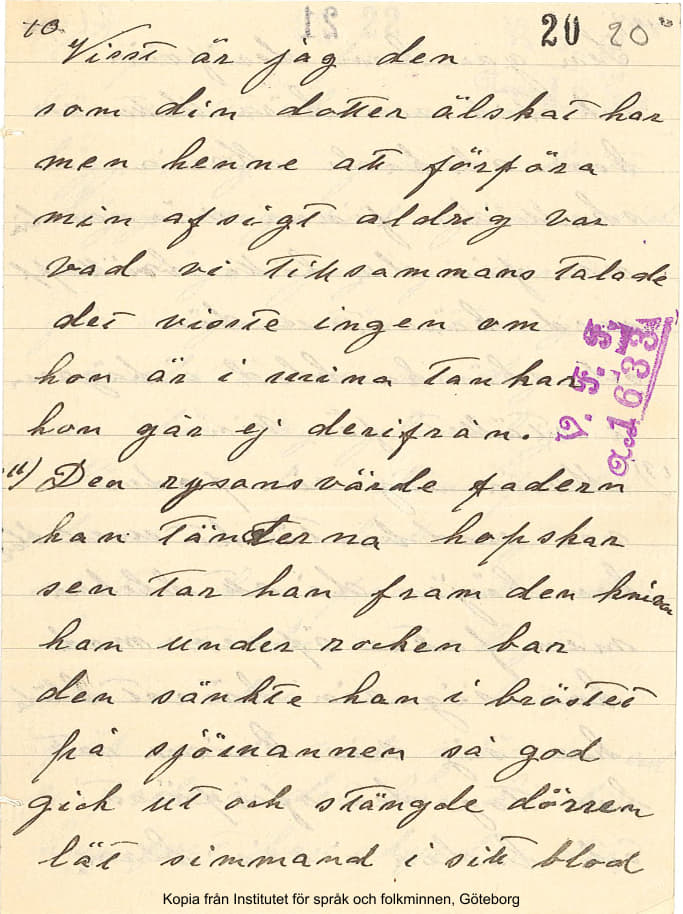 10. 20 20
Visst är jag den
som din dotter älskat har
men henne att förföra
min afsigt aldrig var
vad vi tillsammans talade
det visste ingen om
hon är i mina tankar
hon går ej derifrån.
V. F. F.
Acc 1633
11) Den rysansvärde fadern
han tänderna hopskar
sen tar han fram den knifven
han under rocken bar
den sänkte han i bröstet
på sjömannen så god
gick ut och stängde dörren
lät simmand i sitt blod
Kopia från Institutet för språk och folkminnen, Göteborg